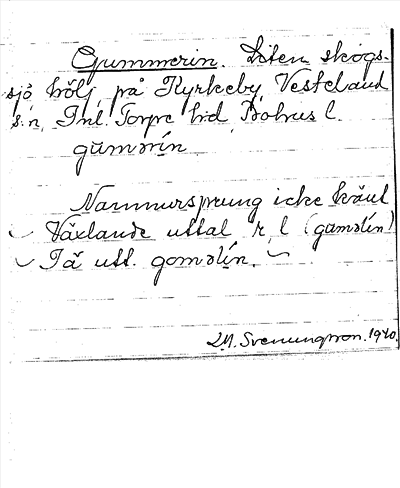 Gummerin. Liten skogs-
sjö på Kyrkeby, Vesteland
s:n, Inl. Torpe hrd, Bohus l.
gŭmərin
Namnursprung icke känt
Växlande uttal r, l (gŭməlin)
Två utt. goməlin.
Svenungsson. 1940.